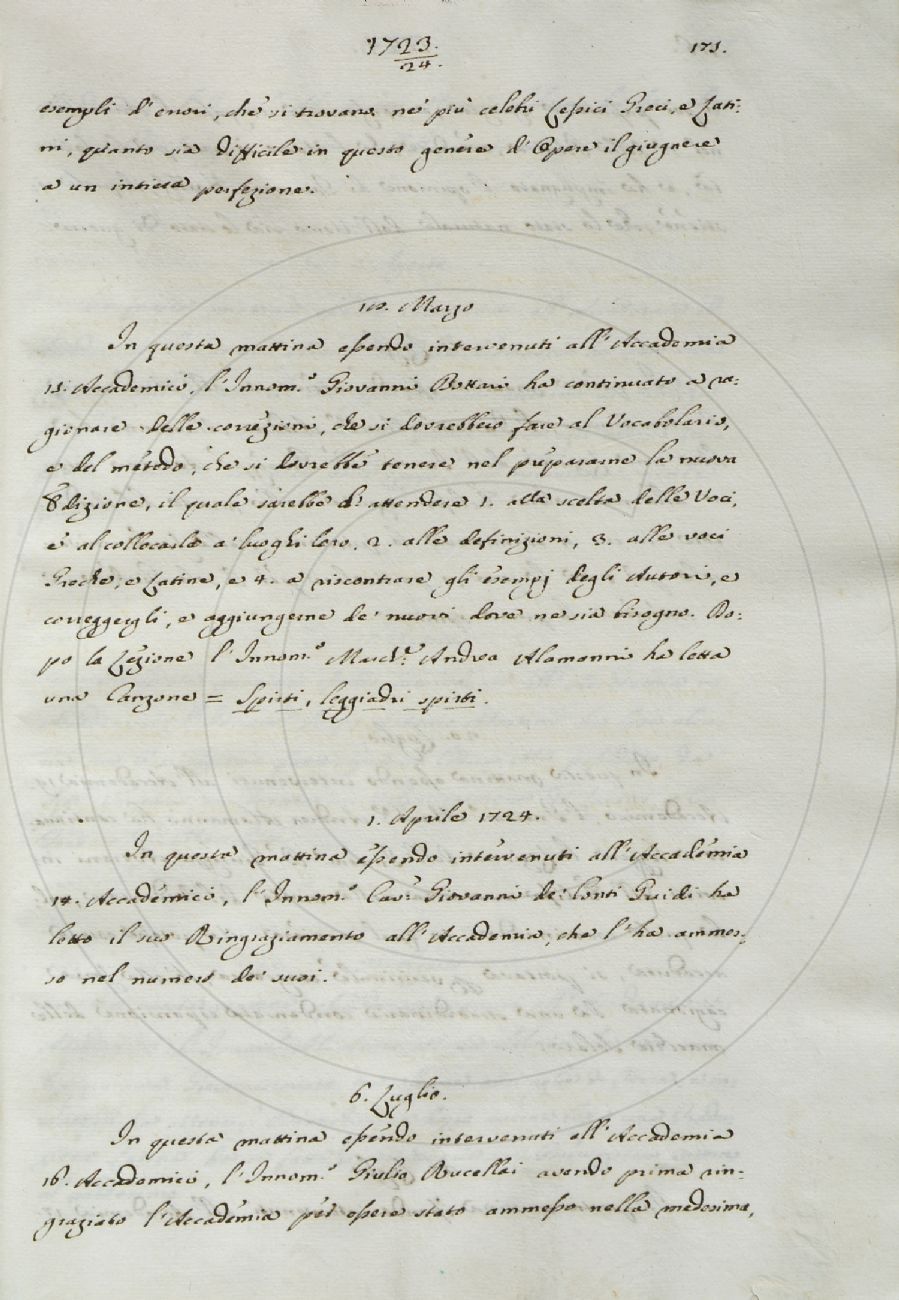 1723.
24.
175.
esempli d'errori, che si trovano ne' più celebri Lessici Greci, e Lati-
ni, quanto sia difficile in questo genere d'Opere il giugnere
a un intiera perfezione.
10. Marzo
In questa mattina essendo intervenuti all'Accademia
15. Accademici, l'Innom.º Giovanni Bottari ha continuato a ra-
gionare delle correzioni, che si dovrebbero fare al Vocabolario,
e del metodo, che si dovrebbe tenere nel preparare la nuova
Edizione, il quale sarebbe d'attendere 1. alla scelta delle Voci,
e al collocarle a' luoghi loro, 2. alle definizioni, 3. alle voci
Greche, e Latine, e 4. a riscontrare gli esempj degli Autori, e
correggergli, e aggiungerne de' nuovi dove ne sia bisogno. Do-
po la Lezione l'Innom.º March.e Andrea Alamanni ha letta
una Canzone = Spirti, leggiadri spirti.
1. Aprile 1724.
In questa mattina essendo intervenuti all'Accademia
14. Accademici, l'Innom.º Cav.r Giovanni de' Conti Guidi ha
letto il suo Ringraziamento all'Accademia, che l'ha ammes-
so nel numero de' suoi.
6. Luglio.
In questa mattina essendo intervenuti all'Accademia
16. Accademici, l'Innom.º Giulio Rucellai avendo prima rin-
graziato l'Accademia per essere stato ammesso nella medesima,